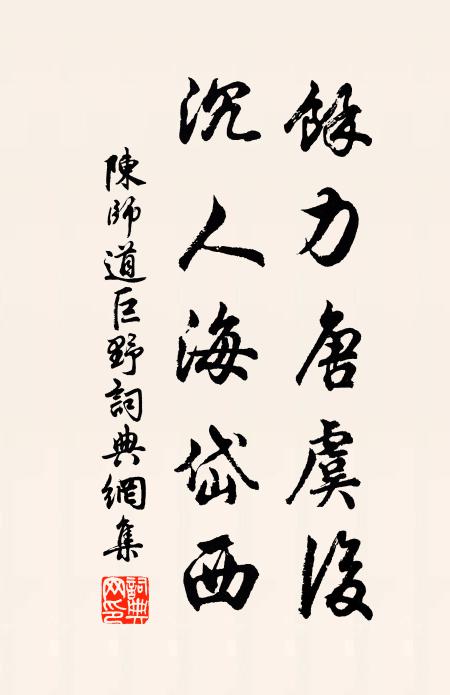 餘力唐虞後
沉人海岱西
陳師道巨野詞典網集
詞典網印